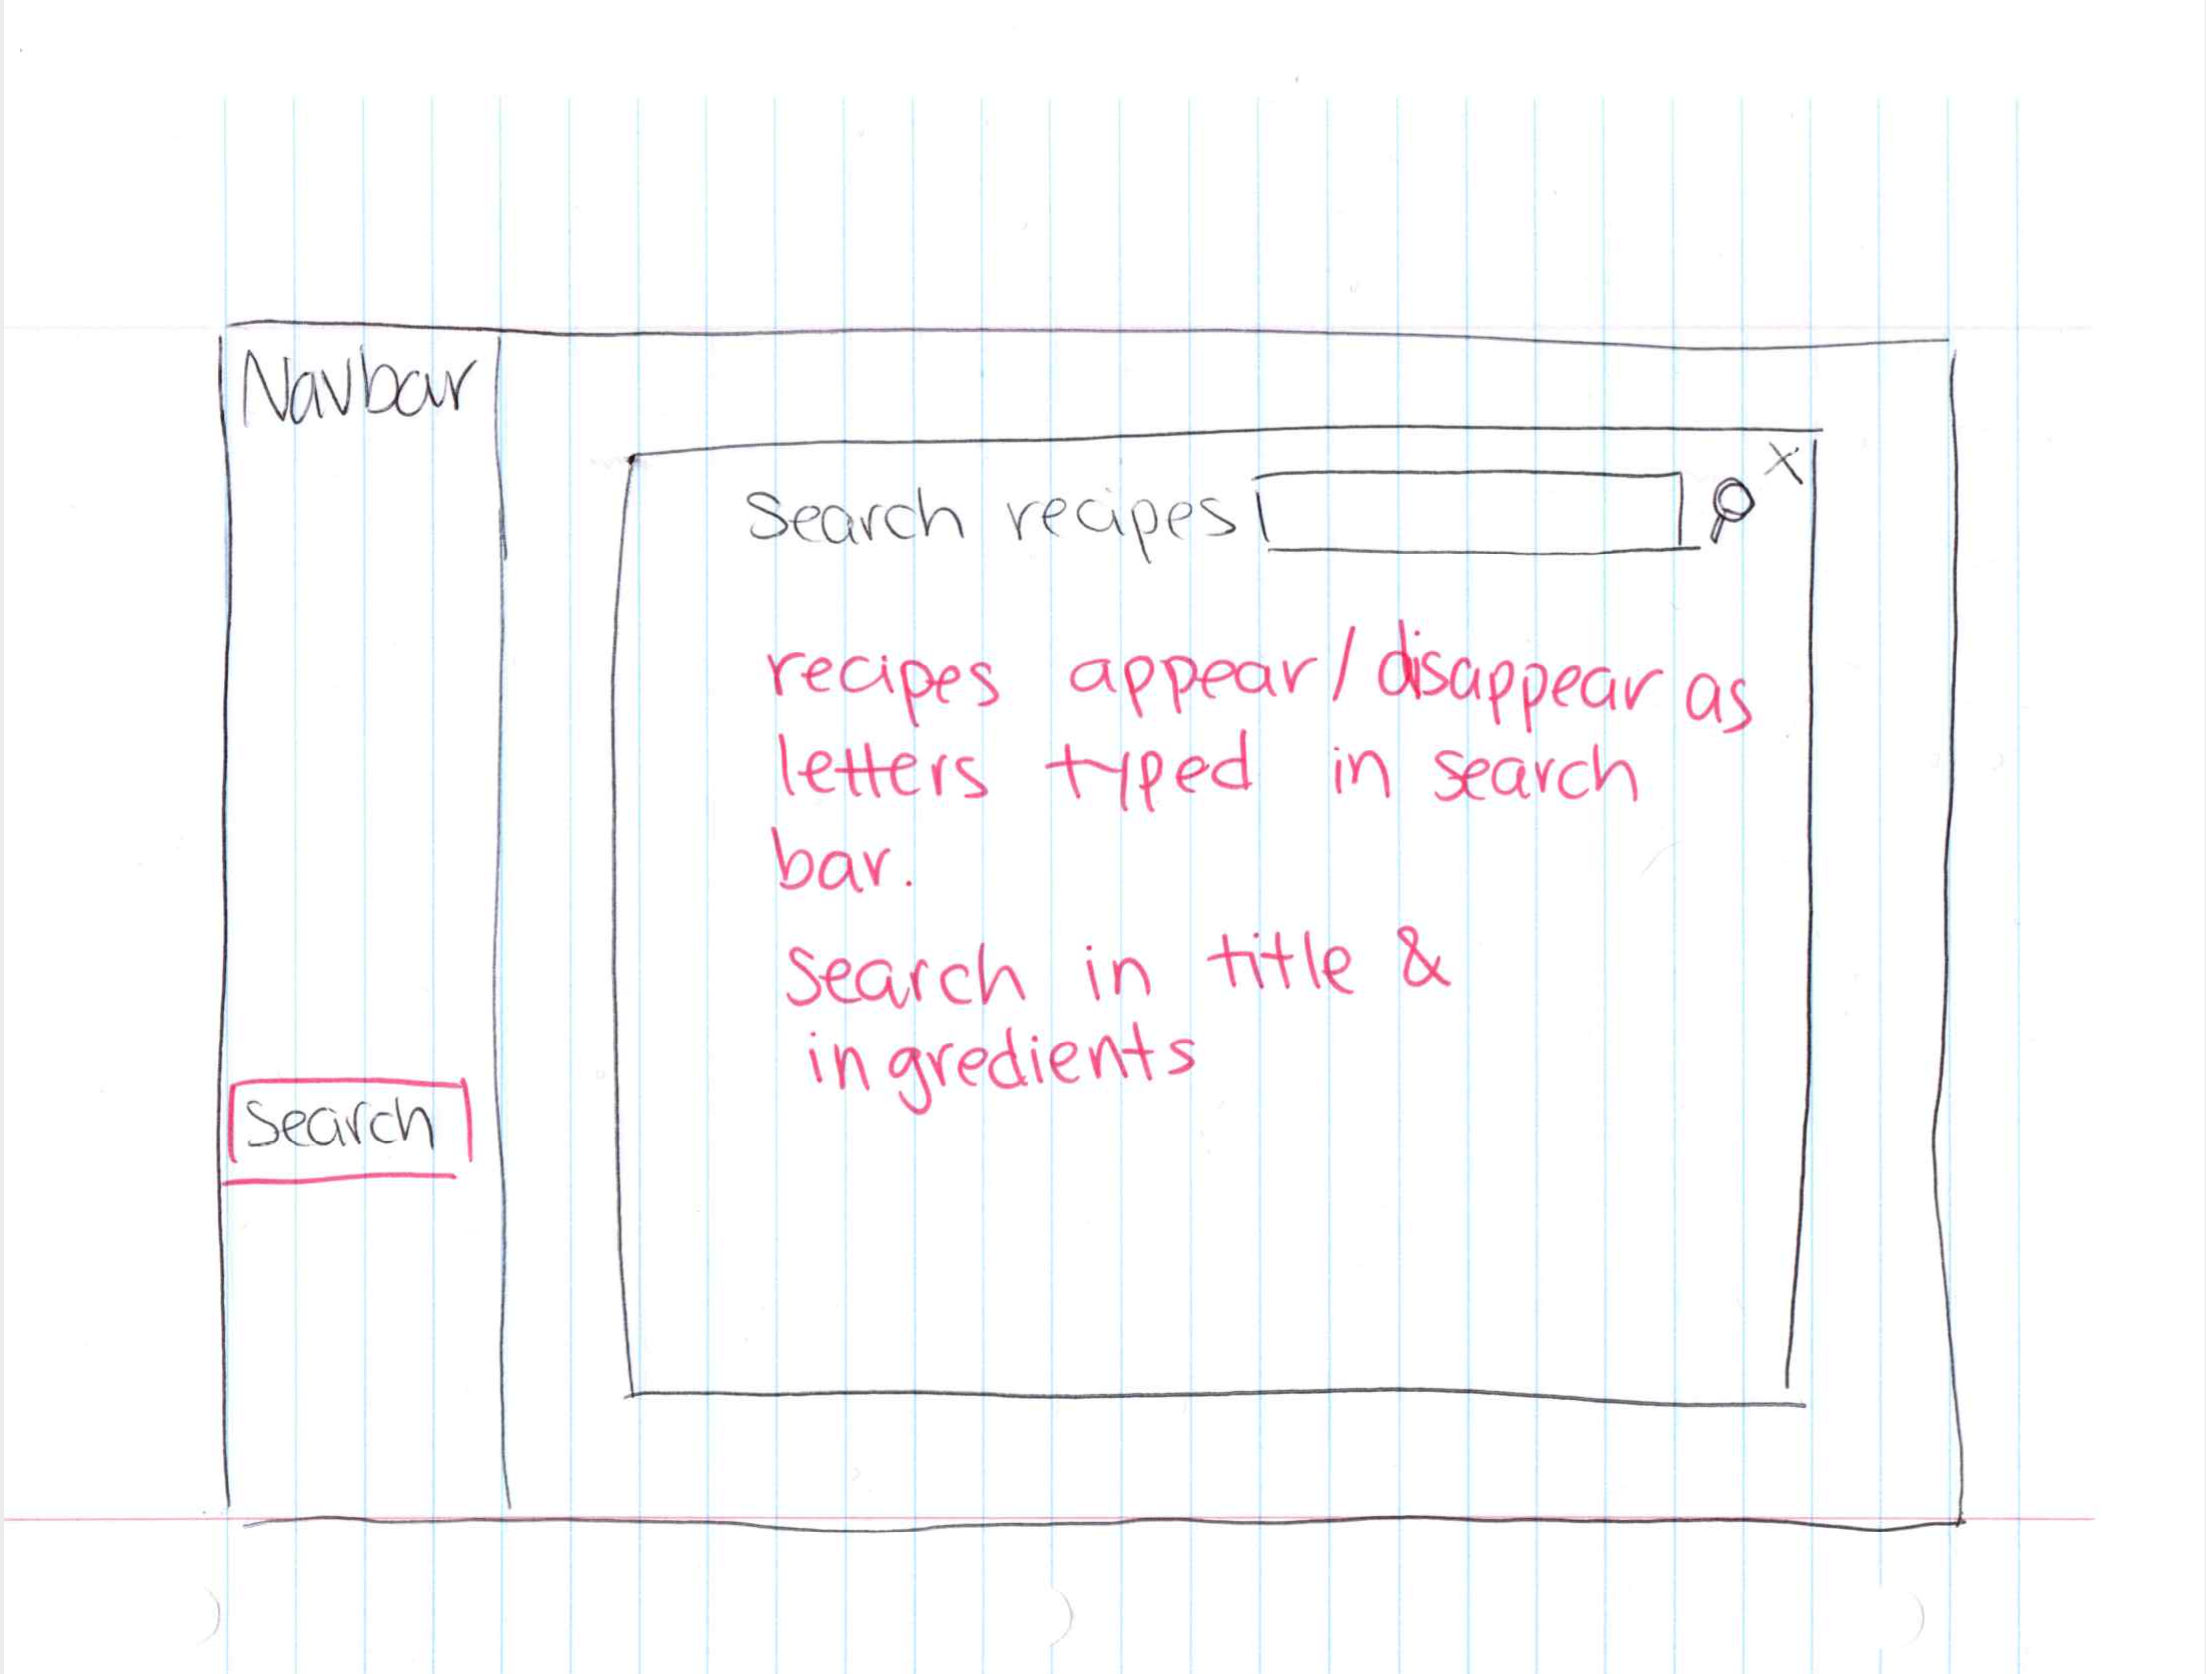 Navbar
Search recipes
X
recipes appear/disappear as
letters typed in search
bar.
search in title &
ingredients
Search